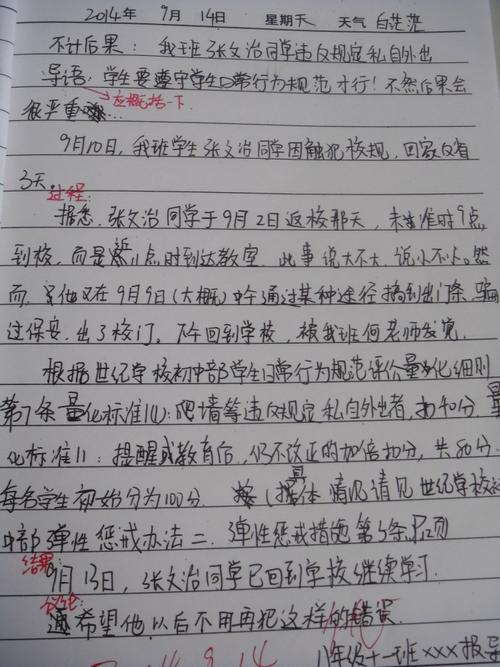 2014年 9月 14日 星期天 天气 白茫茫
不计后果：我班张文治同学违反规定私自外出
导语：学生要遵守学生日常行为规范才行！不然后果会
应概括一下
很严重……
9月10日，我班学生张文治同学因触犯校规，回家反省
3天。
过程：
据悉，张文治同学于9月2日返校那天，未准时9点
到校，而是近11点时到达教室。此事说大不大，说小不小。然
而，他又在9月9日（大概）中午通过某种途径搞到出门条，骗
过保安，出了校门。下午回到学校，被我班何老师发觉。
根据世纪学校初中部学生日常行为规范评价量化细则
第7条量化标准10：爬墙等违反规定私自外出者，扣40分，量
化标准11：提醒或教育后，仍不改正的加倍扣分，共80分。
每名学生初始分为100分。（具体情况请见世纪学校初
中部弹性惩戒办法二.弹性惩戒措施第3条，P12页
结果：
9月13日，张文治同学已回到学校继续学习。
议论：
希望他以后不用再犯这样的错误。
八年级十一班xxx报导